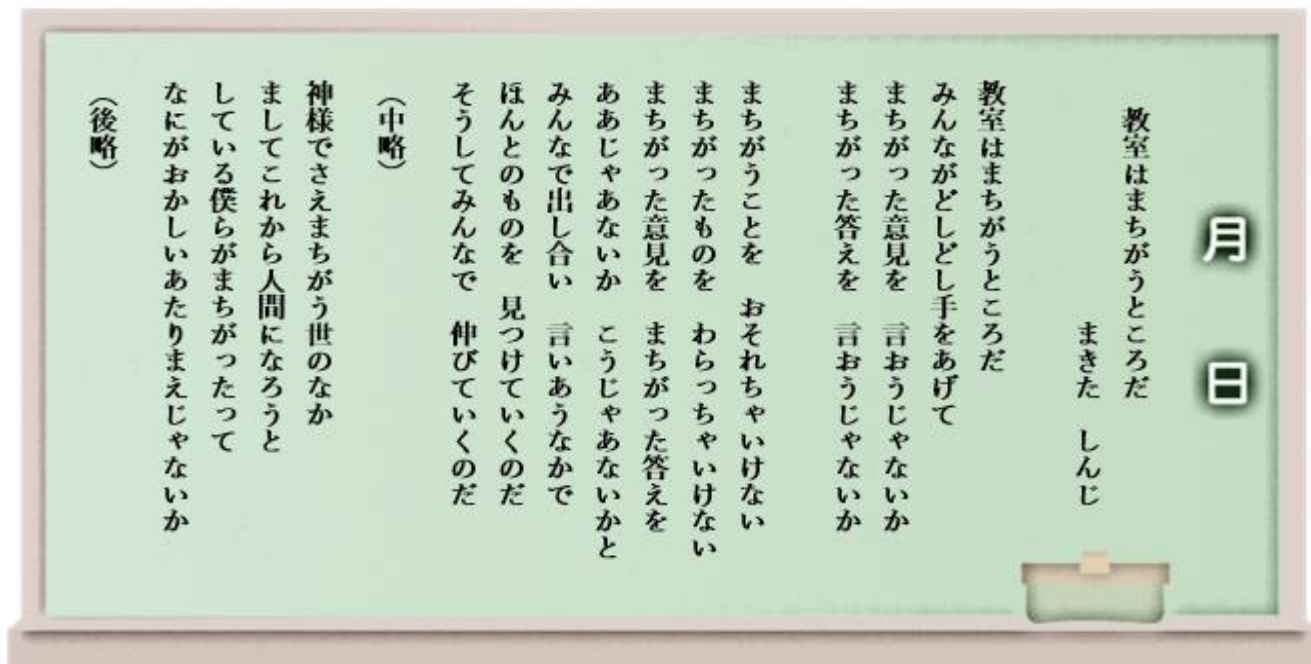 月 日
教室はまちがうところだ
まきた しんじ
教室はまちがうところだ
みんながどしどし手をあげて
まちがった意見を 言おうじゃないか
まちがった答えを 言おうじゃないか
まちがうことを おそれちゃいけない
まちがったものを わらっちゃいけない
まちがった意見を まちがった答えを
ああじゃあないか こうじゃあないかと
みんなで出し合い 言いあうなかで
ほんとのものを 見つけていくのだ
そうしてみんなで 伸びていくのだ
(中略)
神様でさえまちがう世のなか
ましてこれから人間になろうと
している僕らがまちがったって
なにがおかしいあたりまえじゃないか
(後略)